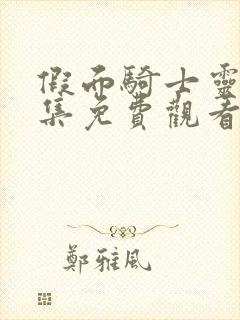 假面騎士靈
集免費觀看
鄭雅風